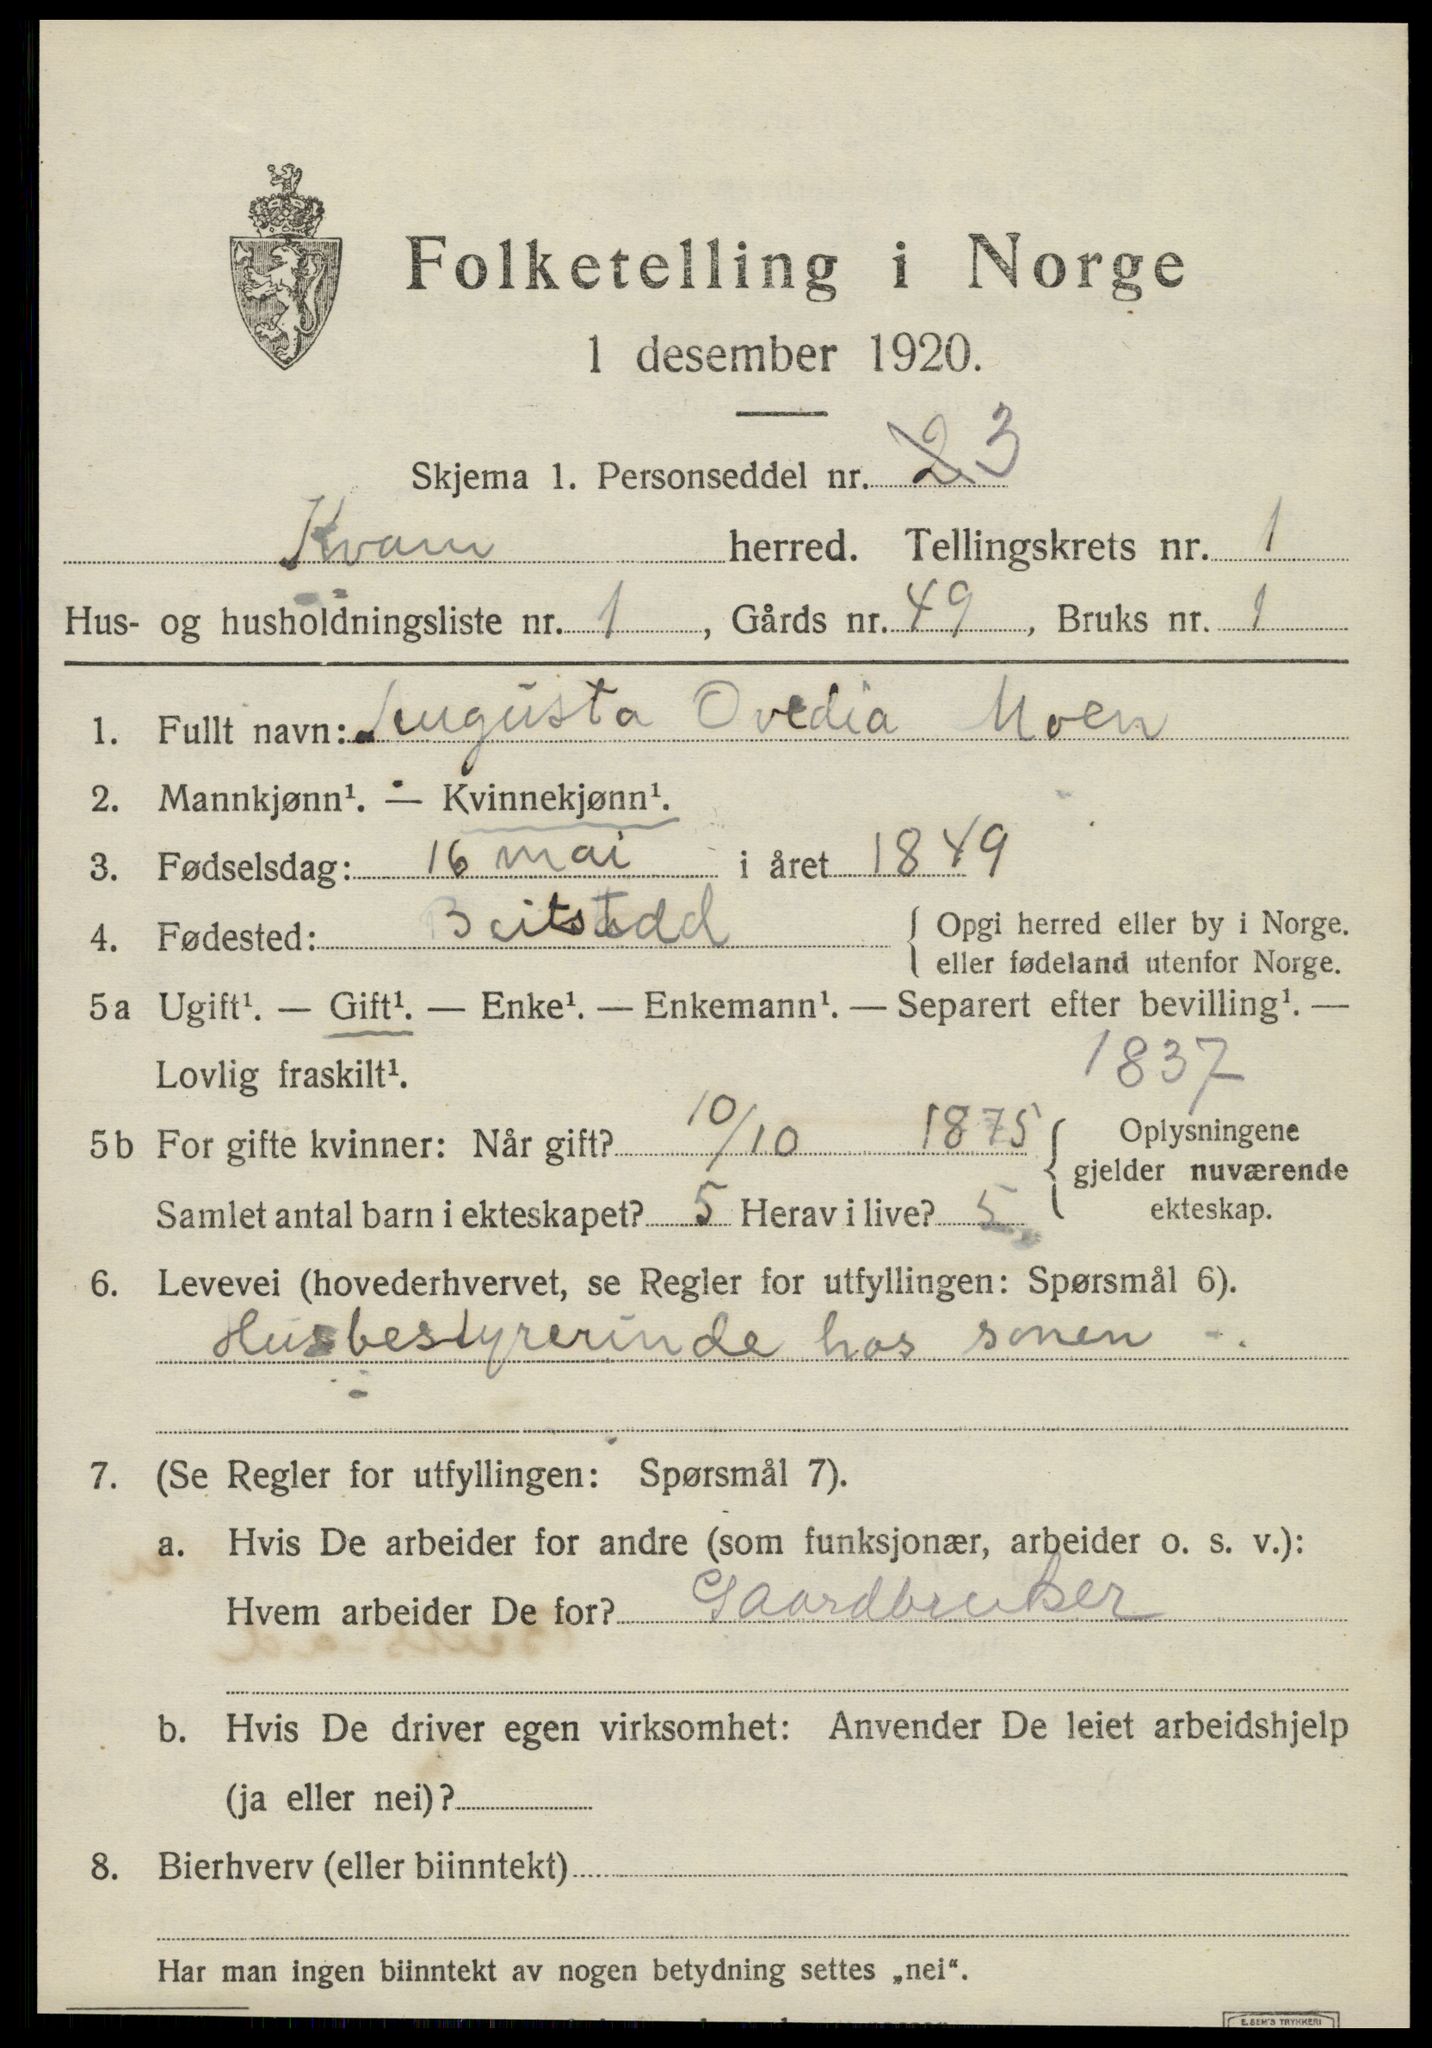 Folketelling i Norge
1 desember 1920.
Skjema 1. Personseddel nr. 2 3
Kvam herred. Tellingskrets nr. 1
Hus- og husholdningsliste nr. 1, Gårds nr. 49, Bruks nr. 1
1. Fullt navn: Augusta Ovedia Moen
2. Mannkjønn¹. — Kvinnekjønn¹.
3. Fødselsdag: 16 mai i året 1849
4. Fødested: Beitstadd { Opgi herred eller by i Norge.
eller fødeland utenfor Norge.
5a Ugift¹. — Gift¹. — Enke¹. — Enkemann¹. — Separert efter bevilling¹. —
Lovlig fraskilt¹. 1837
5b For gifte kvinner: Når gift? 10/10 1875 { Oplysningene
gjelder nuværende
Samlet antal barn i ekteskapet? 5 Herav i live? 5 ekteskap.
6. Levevei (hovederhvervet, se Regler for utfyllingen: Spørsmål 6).
Husbestyrerinde hos sønen -.
7. (Se Regler for utfyllingen: Spørsmål 7).
a. Hvis De arbeider for andre (som funksjonær, arbeider o. s. v.):
Hvem arbeider De for? Gaardbruker
b. Hvis De driver egen virksomhet: Anvender De leiet arbeidshjelp
(ja eller nei)?
8. Bierhverv (eller biinntekt)
Har man ingen biinntekt av nogen betydning settes „nei“.
E. SEM'S TRYKKERI